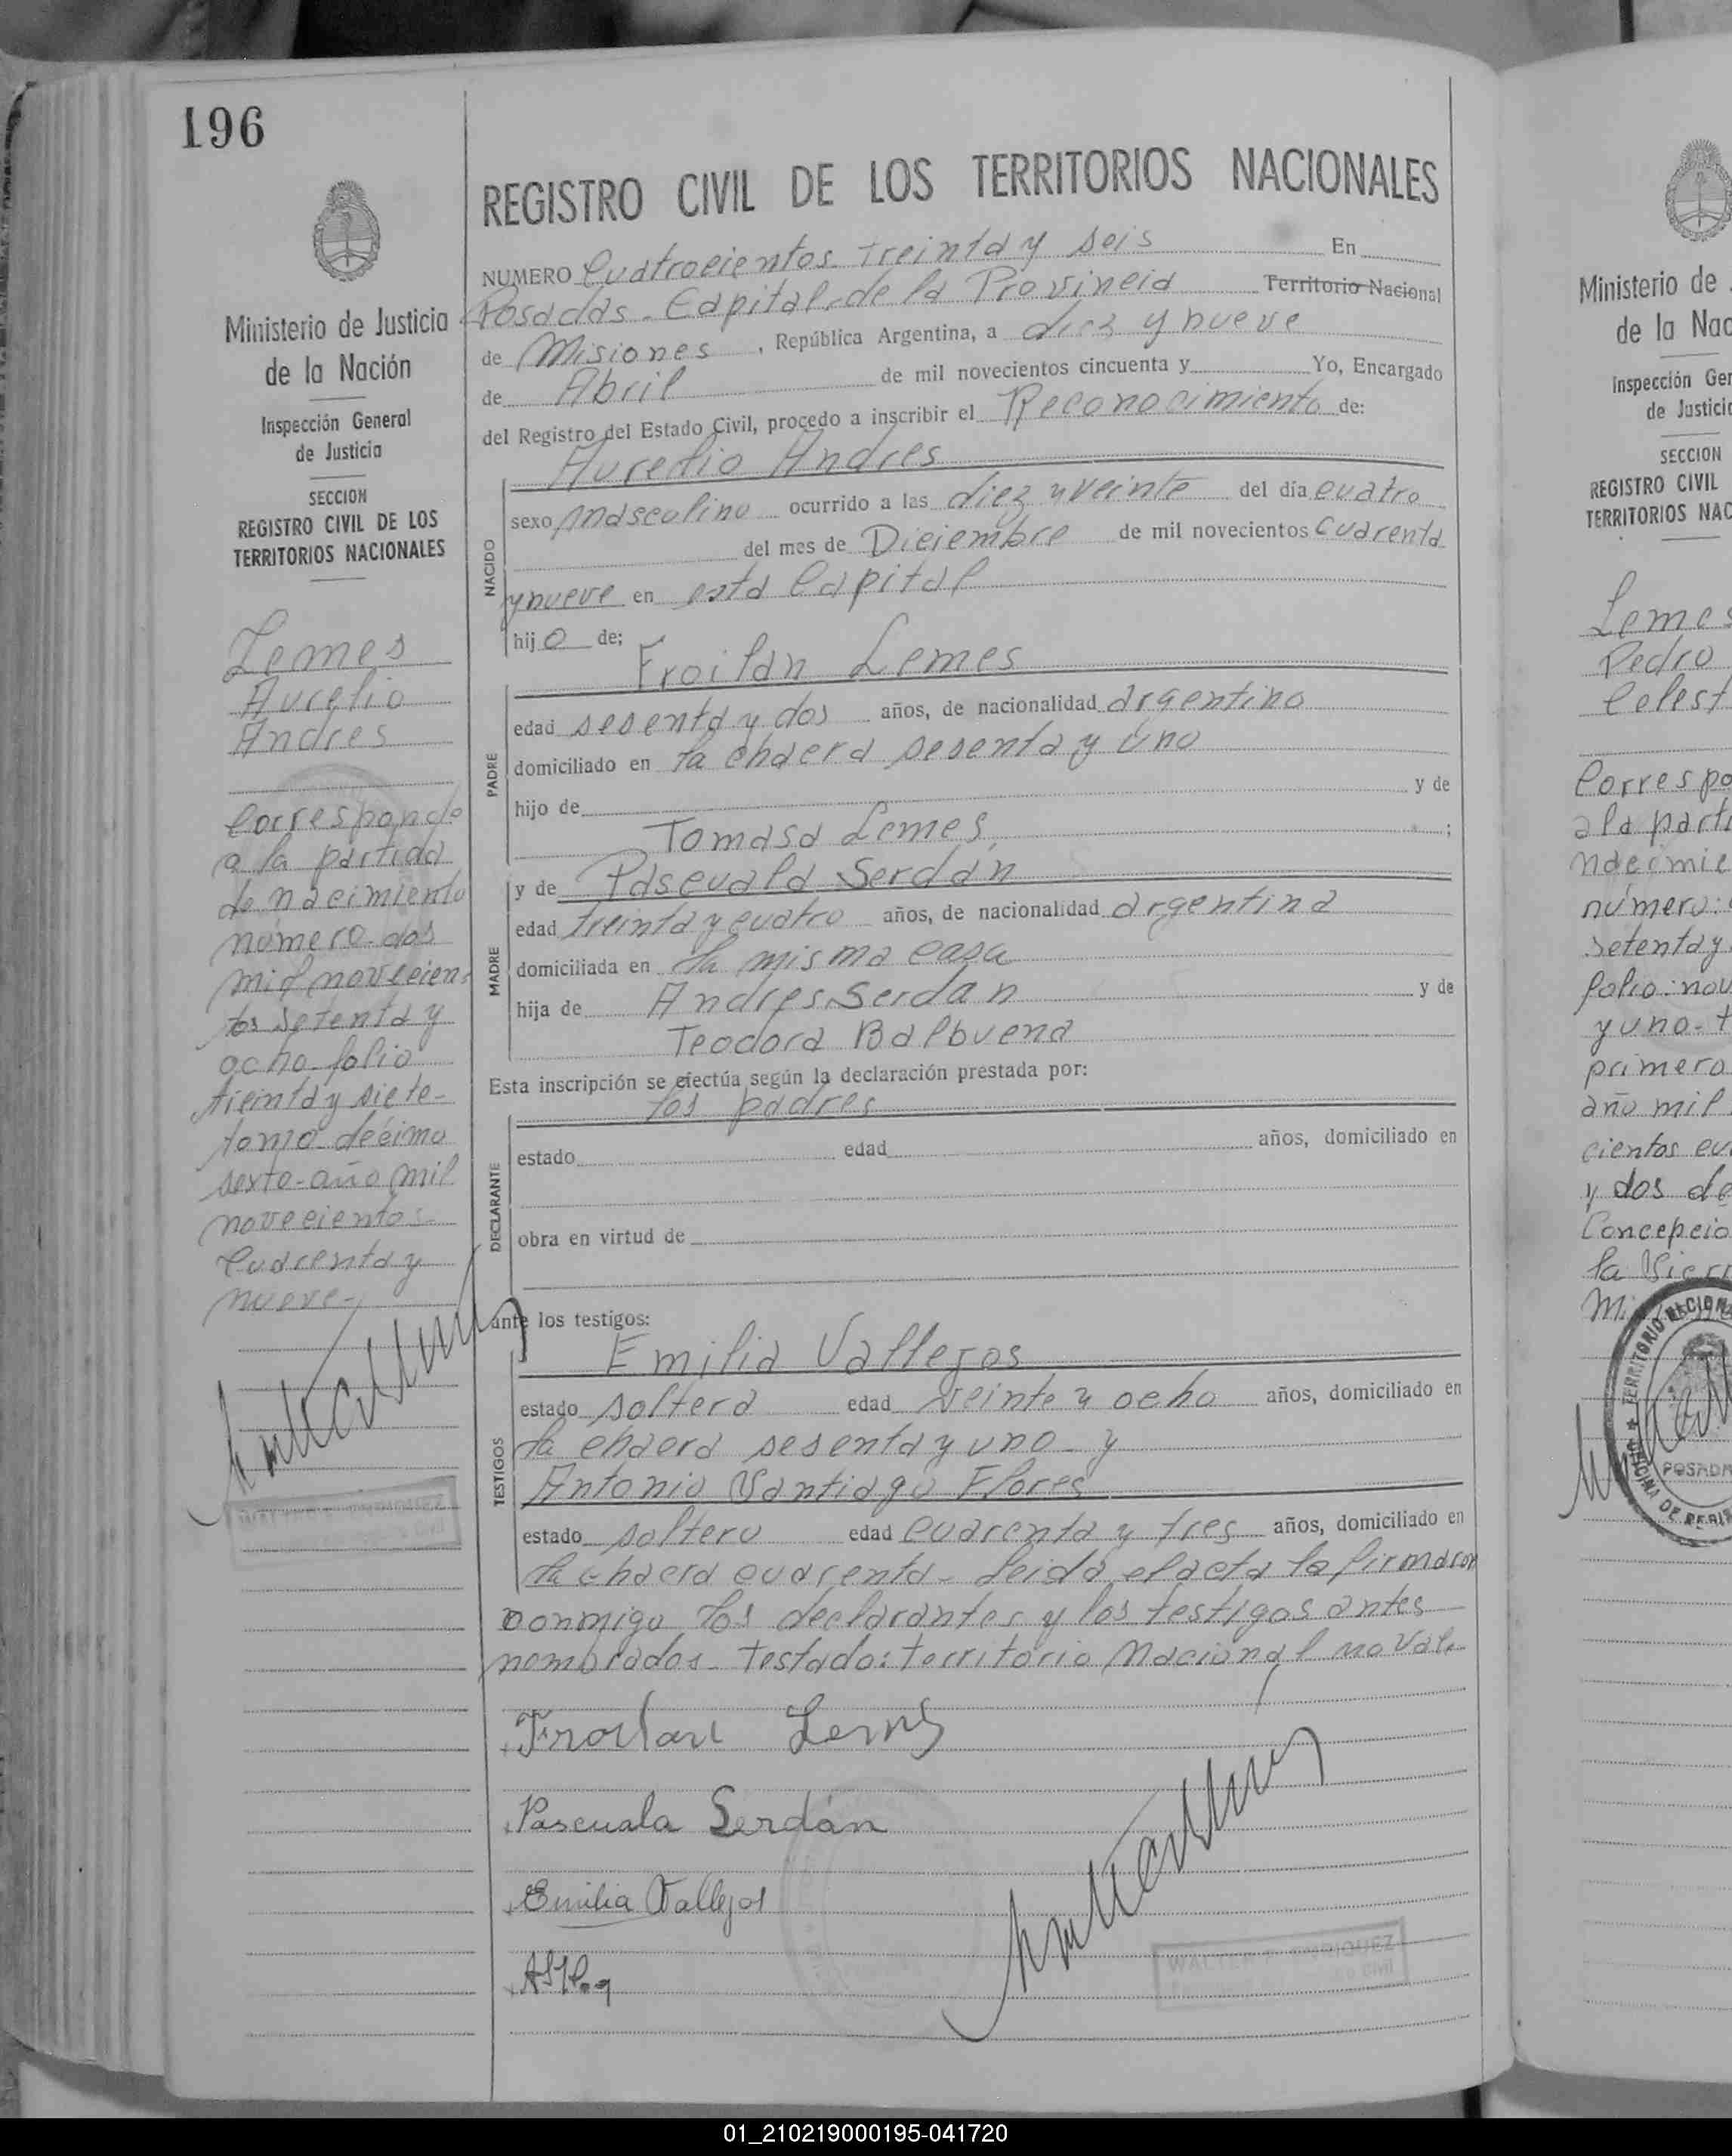 196
Ministerio de Justicia
de la Nación
Inspección General
de Justicia
SECCION
REGISTRO CIVIL DE LOS
TERRITORIOS NACIONALES
Lemes
Aurelio
Andres
Corresponde
a la partida
de nacimiento
número dos
mil novecien-
tos setenta y
ocho folio
treinta y siete-
tomo décimo
sexto-año mil
novecientos
cuarenta y
nueve-
REGISTRO CIVIL DE LOS TERRITORIOS NACIONALES
NUMERO Cuatrocientos treinta y seis En
Posadas - Capital de la Provincia Territorio Nacional
de Misiones, República Argentina, a diez y nueve
de Abril de mil novecientos cincuenta y Yo, Encargado
del Registro del Estado Civil, procedo a inscribir el Reconocimiento de:
Aurelio Andres
NACIDO
sexo masculino ocurrido a las diez y veinte del día cuatro
del mes de Diciembre de mil novecientos cuarenta
y nueve en esta Capital
hijo de;
Froilan Lemes
PADRE
edad sesenta y dos años, de nacionalidad argentino
domiciliado en la chacra sesenta y uno
hijo de y de
Tomasa Lemes ;
MADRE
y de Pascuala Serdán
edad treinta y cuatro años, de nacionalidad argentina
domiciliada en la misma casa
hija de Andres Serdan y de
Teodora Balbuena
Esta inscripción se efectúa según la declaración prestada por:
los padres
DECLARANTE
estado edad años, domiciliado en
obra en virtud de
ante los testigos:
Emilia Vallejos
TESTIGOS
estado soltera edad veinte y ocho años, domiciliado en
la chacra sesenta y uno - y
Antonio Santiago Flores
estado soltero edad cuarenta y tres años, domiciliado en
la chacra cuarenta - Leida el acta la firmaron
conmigo los declarantes y los testigos antes
nombrados - Testado: territorio Nacional no vale
Froilan Lemes
Pascuala Serdán
Emilia Vallejos
WALTER ENRIQUEZ
Ministerio de
de la Nac
Inspección Gen
de Justicia
SECCION
REGISTRO CIVIL
TERRITORIOS NAC
Lemes
Pedro
Celest
Correspo
a la parti
nacimie
número:
setenta y
folio: nov
y uno - t
primero
año mil
cientos cu
y dos de
Concepcio
la Sierr
TERRITORIO NACION
POSADA
01_210219000195-041720